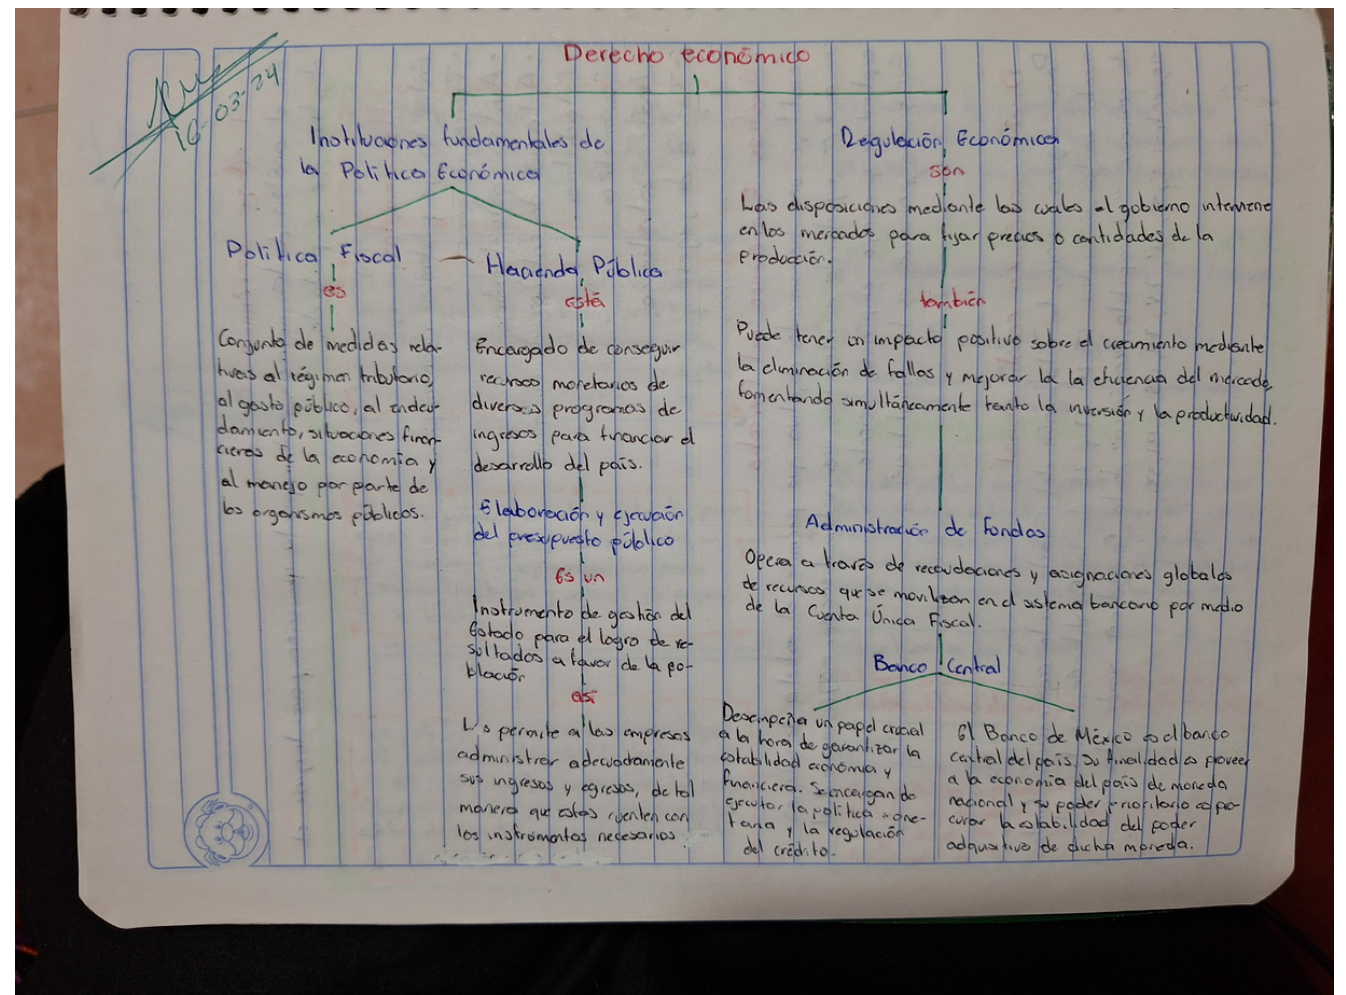 Derecho económico
16-03-24
Instituciones fundamentales de
la Política Económica
Política Fiscal
es
Conjunto de medidas rela-
tivas al régimen tributario,
al gasto público, al endeu-
damiento, situaciones finan-
cieras de la economía y
al manejo por parte de
los organismos públicos.
Hacienda Pública
está
Encargado de conseguir
recursos monetarios de
diversos programas de
ingresos para financiar el
desarrollo del país.
Elaboración y ejecución
del presupuesto público
Es un
Instrumento de gestión del
Estado para el logro de re-
sultados a favor de la po-
blación
así
permite a las empresas
administrar adecuadamente
sus ingresos y egresos, de tal
manera que estos cuenten con
los instrumentos necesarios.
Regulación Económica
son
Las disposiciones mediante las cuales el gobierno interviene
en los mercados para fijar precios o cantidades de la
producción.
también
Puede tener un impacto positivo sobre el crecimiento mediante
la eliminación de fallas y mejorar la la eficiencia del mercado,
fomentando simultáneamente tanto la inversión y la productividad.
Administración de Fondos
Opera a través de recaudaciones y asignaciones globales
de recursos que se movilizan en el sistema bancario por medio
de la Cuenta Única Fiscal.
Banco Central
Desempeña un papel crucial
a la hora de garantizar la
estabilidad economía y
financiera. Se encargan de
ejecutar la política mone-
taria y la regulación
del crédito.
El Banco de México es el banco
central del país, su finalidad es proveer
a la economía del país de moneda
nacional y su poder prioritario es pro-
curar la estabilidad del poder
adquisitivo de dicha moneda.